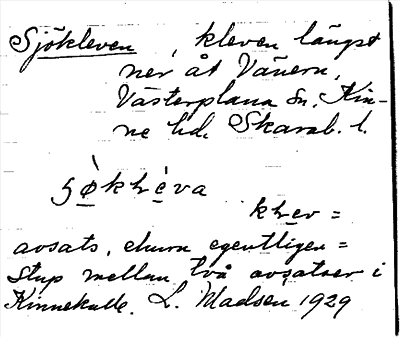 Sjökleven, kleven längst
ner åt Vänern,
Västerplana sn. Kin-
ne hd. Skarab. l.
klev =
avsats, även egentligen =
stup mellan två avsatser i
Kinnekulle. L. Madsen 1929